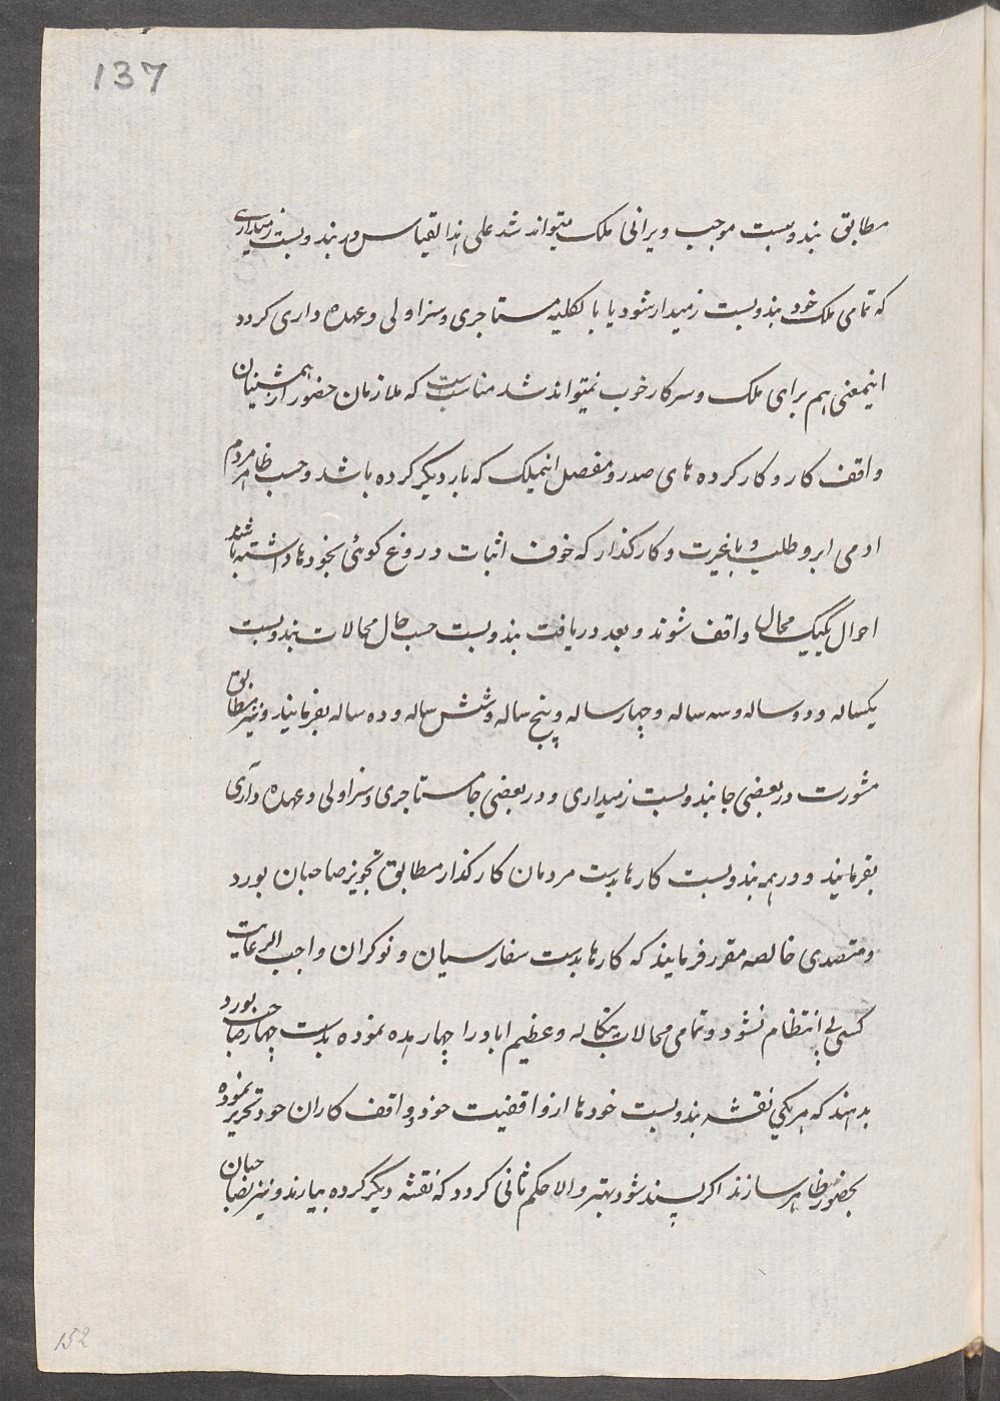 137
مطابق بندوبست موجب ویرانی ملک میتواند شد علی هذا القیاس در بندوبست زمینداری
که تمامی ملک خود بندوبست زمیندار شود یا بالکلیه مستاجری و سزاولی و عهده داری کردد
اینمعنی هم برای ملک و سرکار خوب نمیتواند شد مناسب است که ملازمان حضور از همنشینان
واقف کار و کار کرده های صدر و مفصل اینملک که بار دیگر کرده باشد و حسب ظاهر مردم
ادمی ابرو طلب و با غیرت و کارکذار که خوف اثبات دروغ کوئی بخودها داشته باشند
احوال یکیک محال واقف شوند و بعد دریافت بندوبست حسب حال محالات بندوبست
یکساله و دوساله و سه ساله و چهارساله و پنج ساله و شش ساله و ده ساله بفرمایند و نیز مطابق
مشورت در بعضی جا بندوبست زمیداری و در بعضی جا مستاجری و سزاولی و عهده داری
بفرمایند و در همه بندوبست کارها بدست مردمان کارکذار مطابق تجویز صاحبان بورد
و متصدی خالصه مقرر فرمایند که کارها بدست سفارسیان و نوکران واجب الرعایت
کسی بی انتظام نشود و تمامی محالات بنکاله و عظیم اباد را چهار مده نموده بدست چهار صاحب بورد
بدهند که هریکی نقشه بندوبست خودها از واقفیت خود و واقف کاران خود تحریر نموده
بحضور ظاهر سازند اکر پسند شود بهتر والا حکم ثانی کردد که نقشه دیگر کرده بیارند و نیز بصاحبان
152